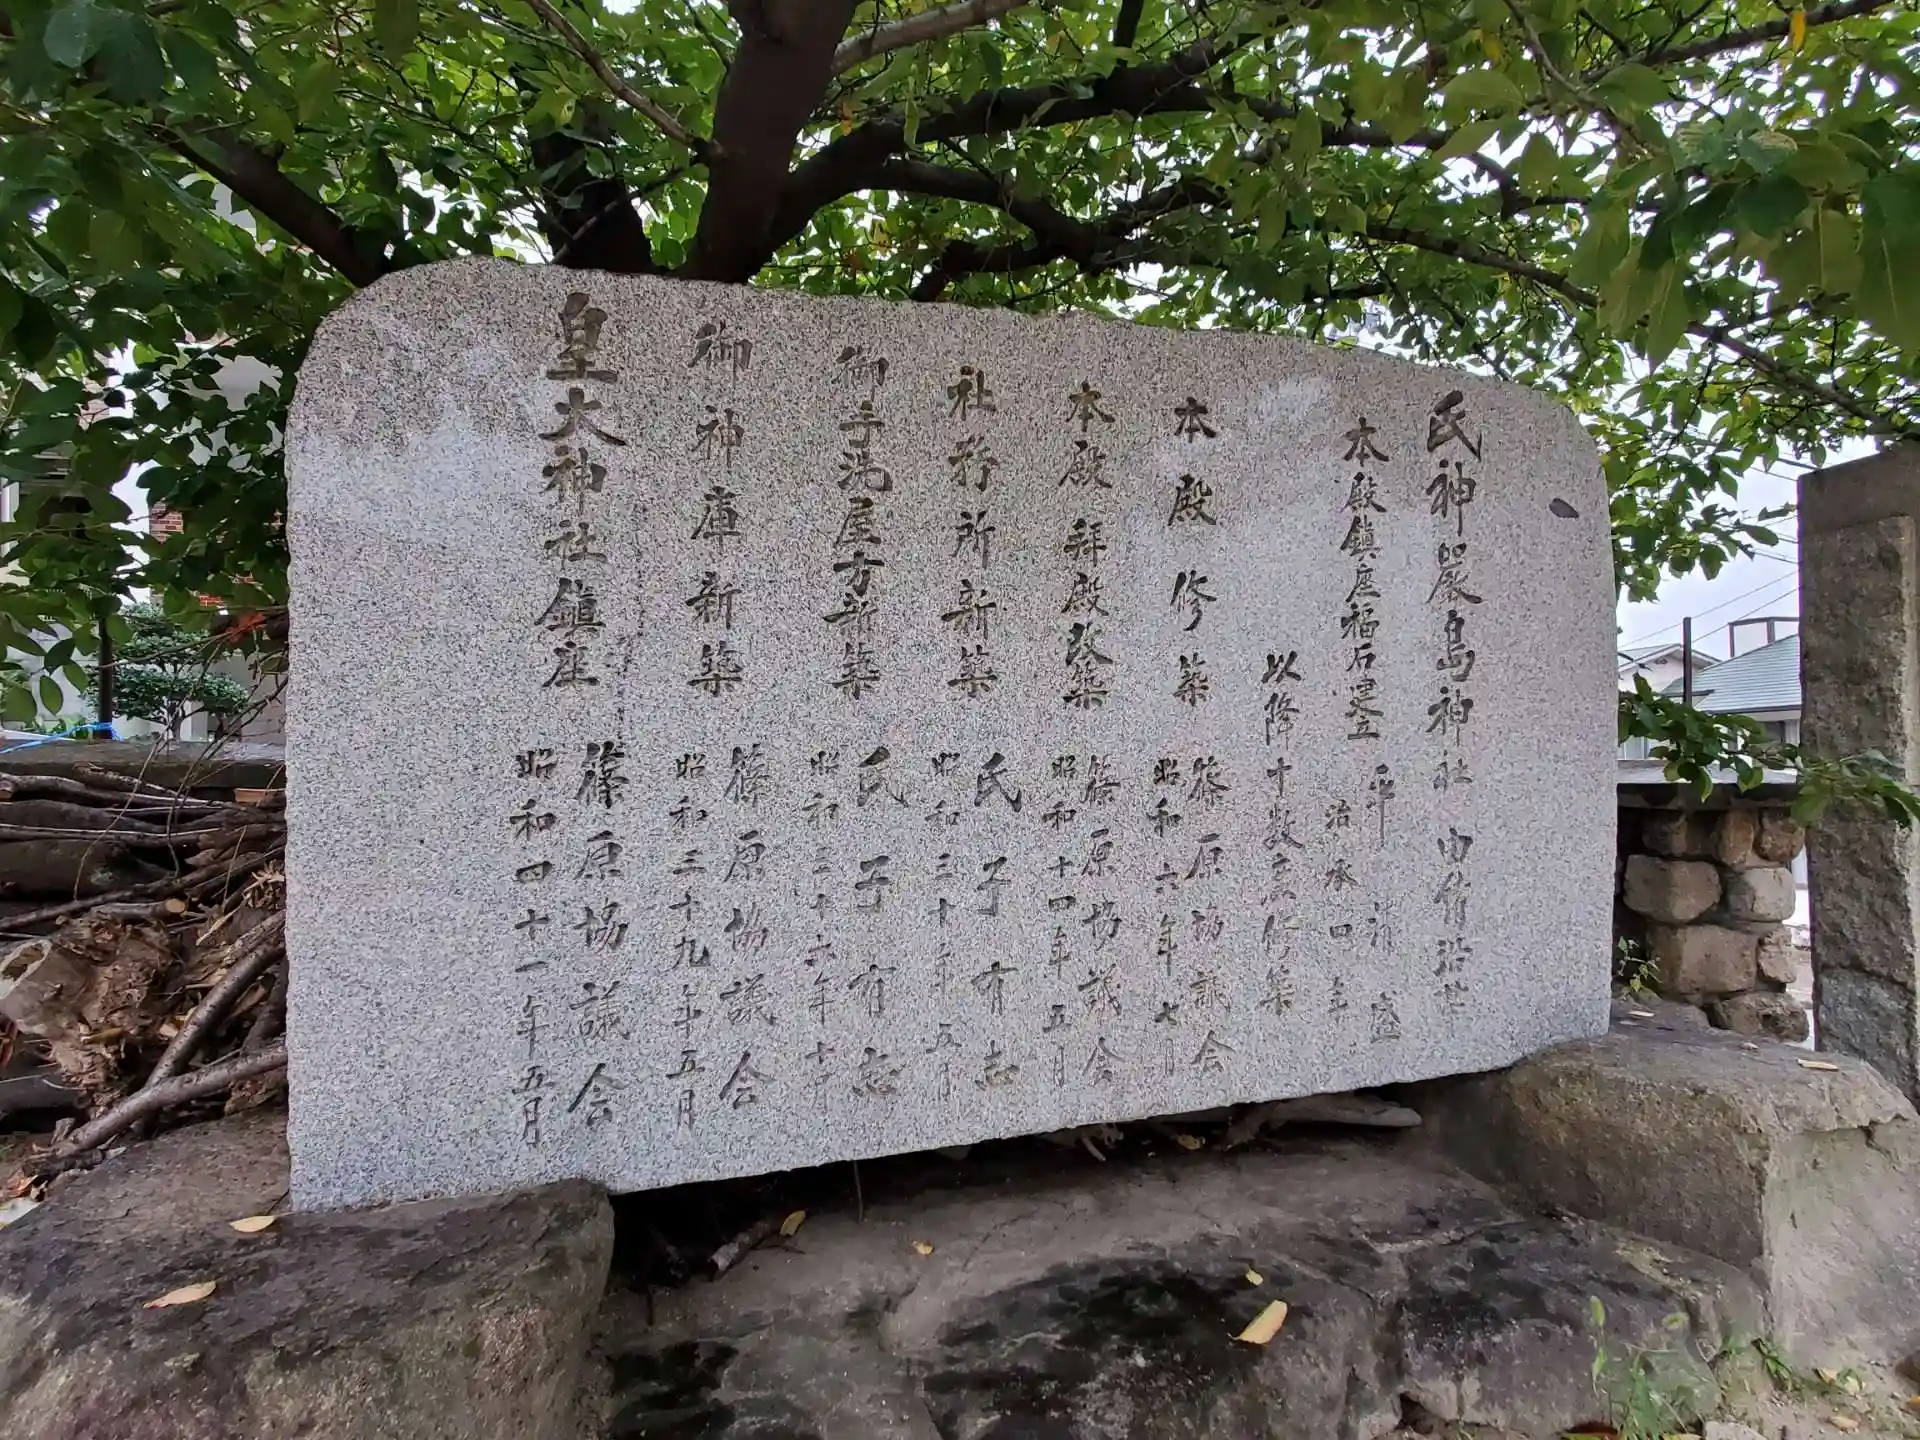 氏神嚴島神社由緒沿革
本殿鎮座福石建立
平清盛
治承四年
以降十数度修築
本殿修築
篠原協議会
昭和六年七月
本殿拝殿改築
篠原協議会
昭和十四年五月
社務所新築
氏子有志
昭和三十年五月
御手洗屋方新築
氏子有志
昭和三十六年十月
御神庫新築
篠原協議会
昭和三十九年五月
皇大神社鎮座
篠原協議会
昭和四十一年五月